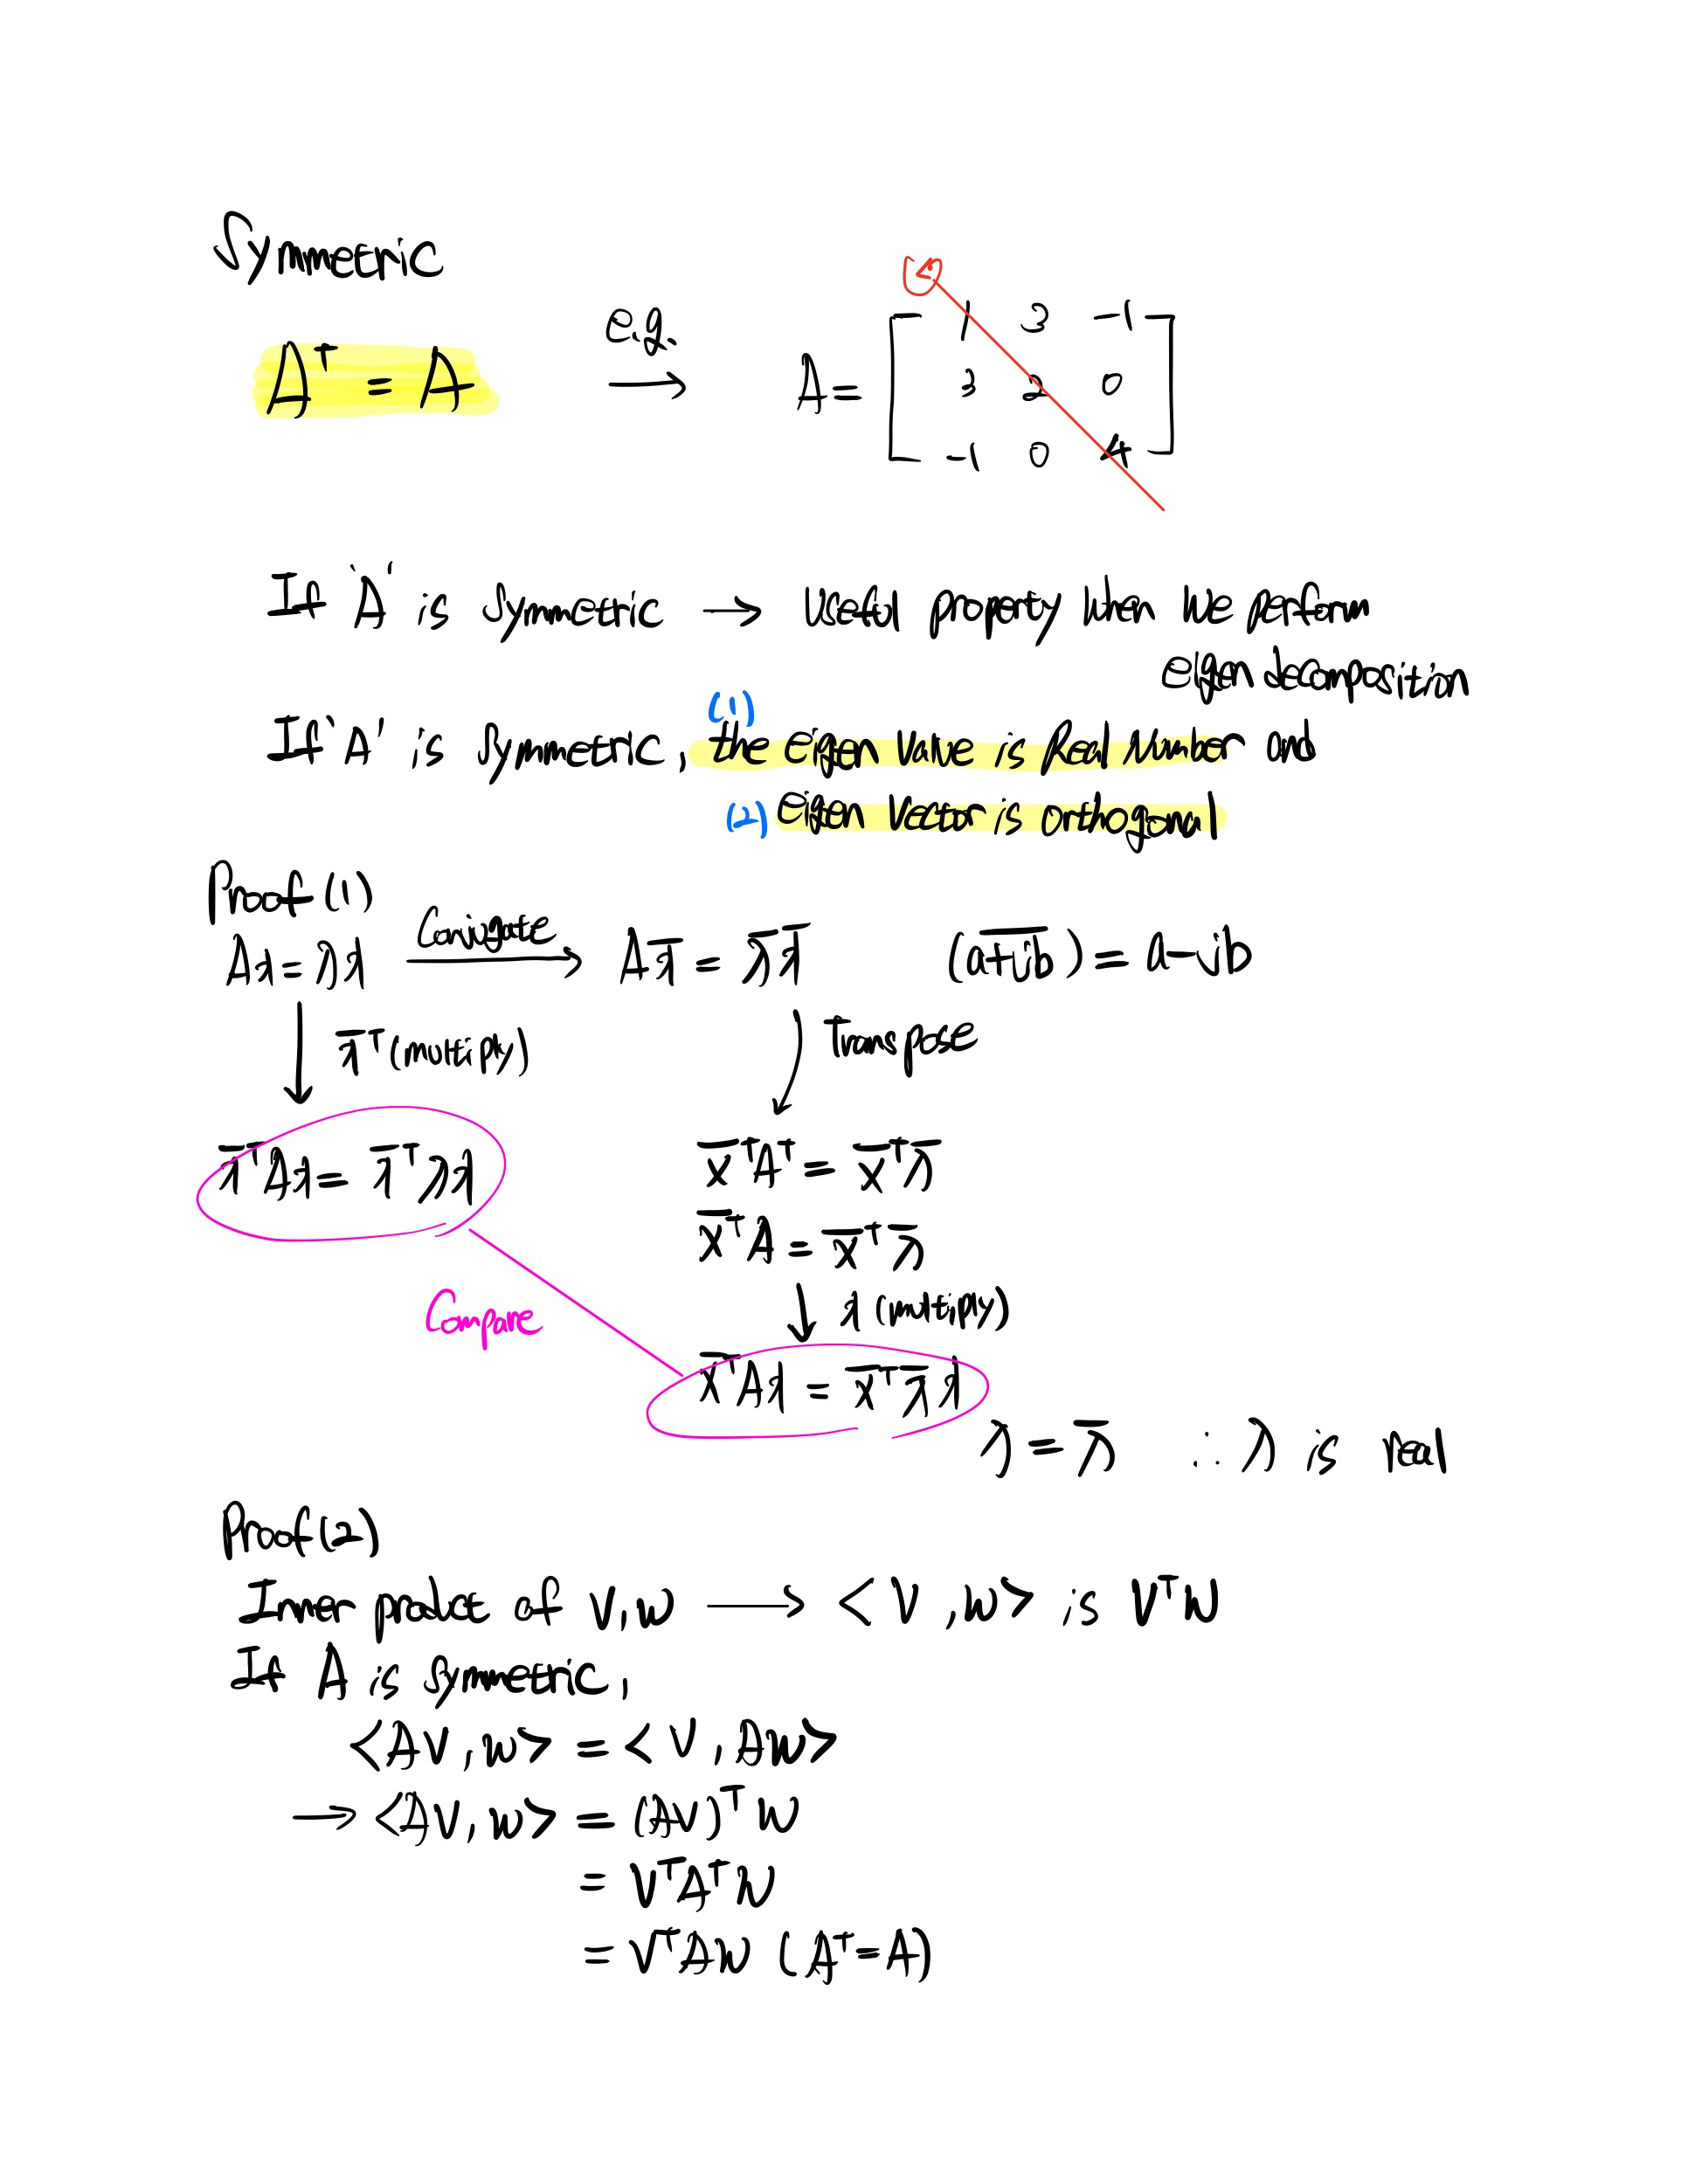 Symmetric
Aᵀ = A
e.g.
→
A = [ 1 3 -1
3 2 0
-1 0 4 ]
If 'A' is symmetric → Useful property when we perform
eigen decomposition
(1)
If 'A' is symmetric, the eigen value is Real Number and
(2) eigen vector is orthogonal
Proof (1)
Ax = λx Conjugate → Ax̄ = λ̄x̄ (a+ib)‾ = a-ib
↓ x̄ᵀ (multiply) ↓ Transpose
x̄ᵀAx = x̄ᵀλx
x̄ᵀAᵀ = x̄ᵀλ̄
x̄ᵀA = x̄ᵀλ̄
↓ x (multiply)
Compare
x̄ᵀAx = x̄ᵀλ̄x
λ = λ̄ ∴ λ is real
Proof (2)
Inner product of v, w → <v, w> is vᵀw
If A is symmetric,
<Av, w> = <v, Aw>
→ <Av, w> = (Av)ᵀw
= vᵀAᵀw
= vᵀAw (Aᵀ=A)